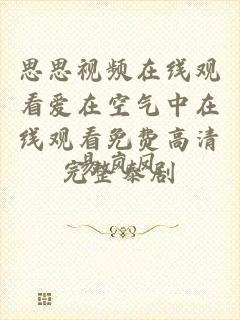 思思视频在线观
看爱在空气中在
线观看免费高清
完整泰剧
易岚风